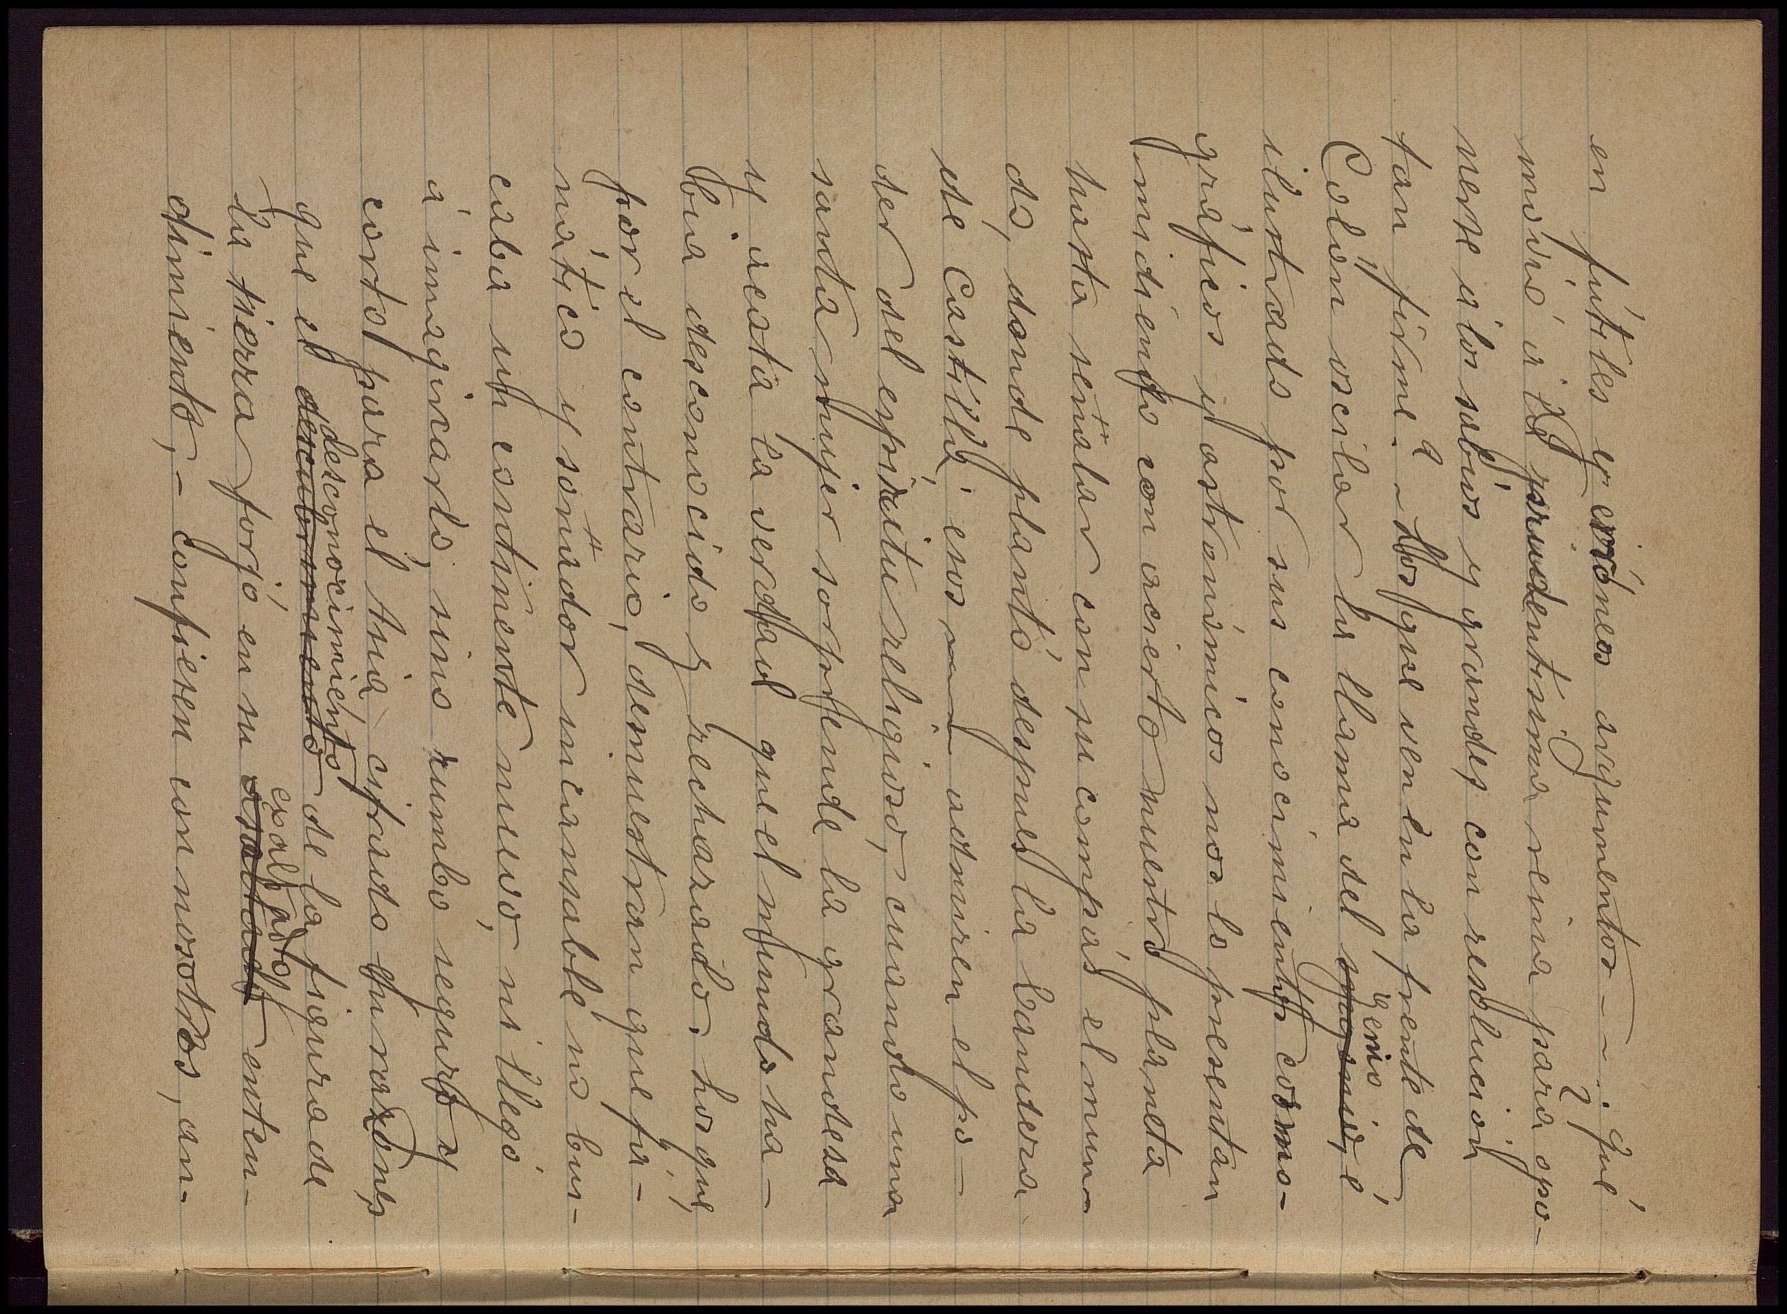 en fútiles y erróneos argumentos — . ¿Qué
movió á la prudentísima reina para opo-
nerse á los sabios y grandes con resolucion
tan firme? — Los que ven en la frente de
Colón oscilar la llama del genio, é
ilustrado por sus conocimientos cosmo-
gráficos y astronómicos nos lo presentan
midiendo con acierto nuestro planeta
hasta señalar con su compás el mun-
do, donde plantó despues la bandera
de Castilla, esos admiren el po-
der del espíritu religioso, cuando una
santa mujer sorprende la grandeza
y acata la verdad que el mundo ha-
bia desconocido y rechazado. Los que,
por el contrario, demuestran que fa-
nático y soñador incansable no bus-
caba un continente nuevo, ni llegó
á imaginarlo, sino rumbo seguro y
corto para el Asia, cifrado en razones
que el descubrimiento desconocimiento de la figura de
la tierra forjó en su exaltado enten-
dimiento, — confiesen con nosotros, an-